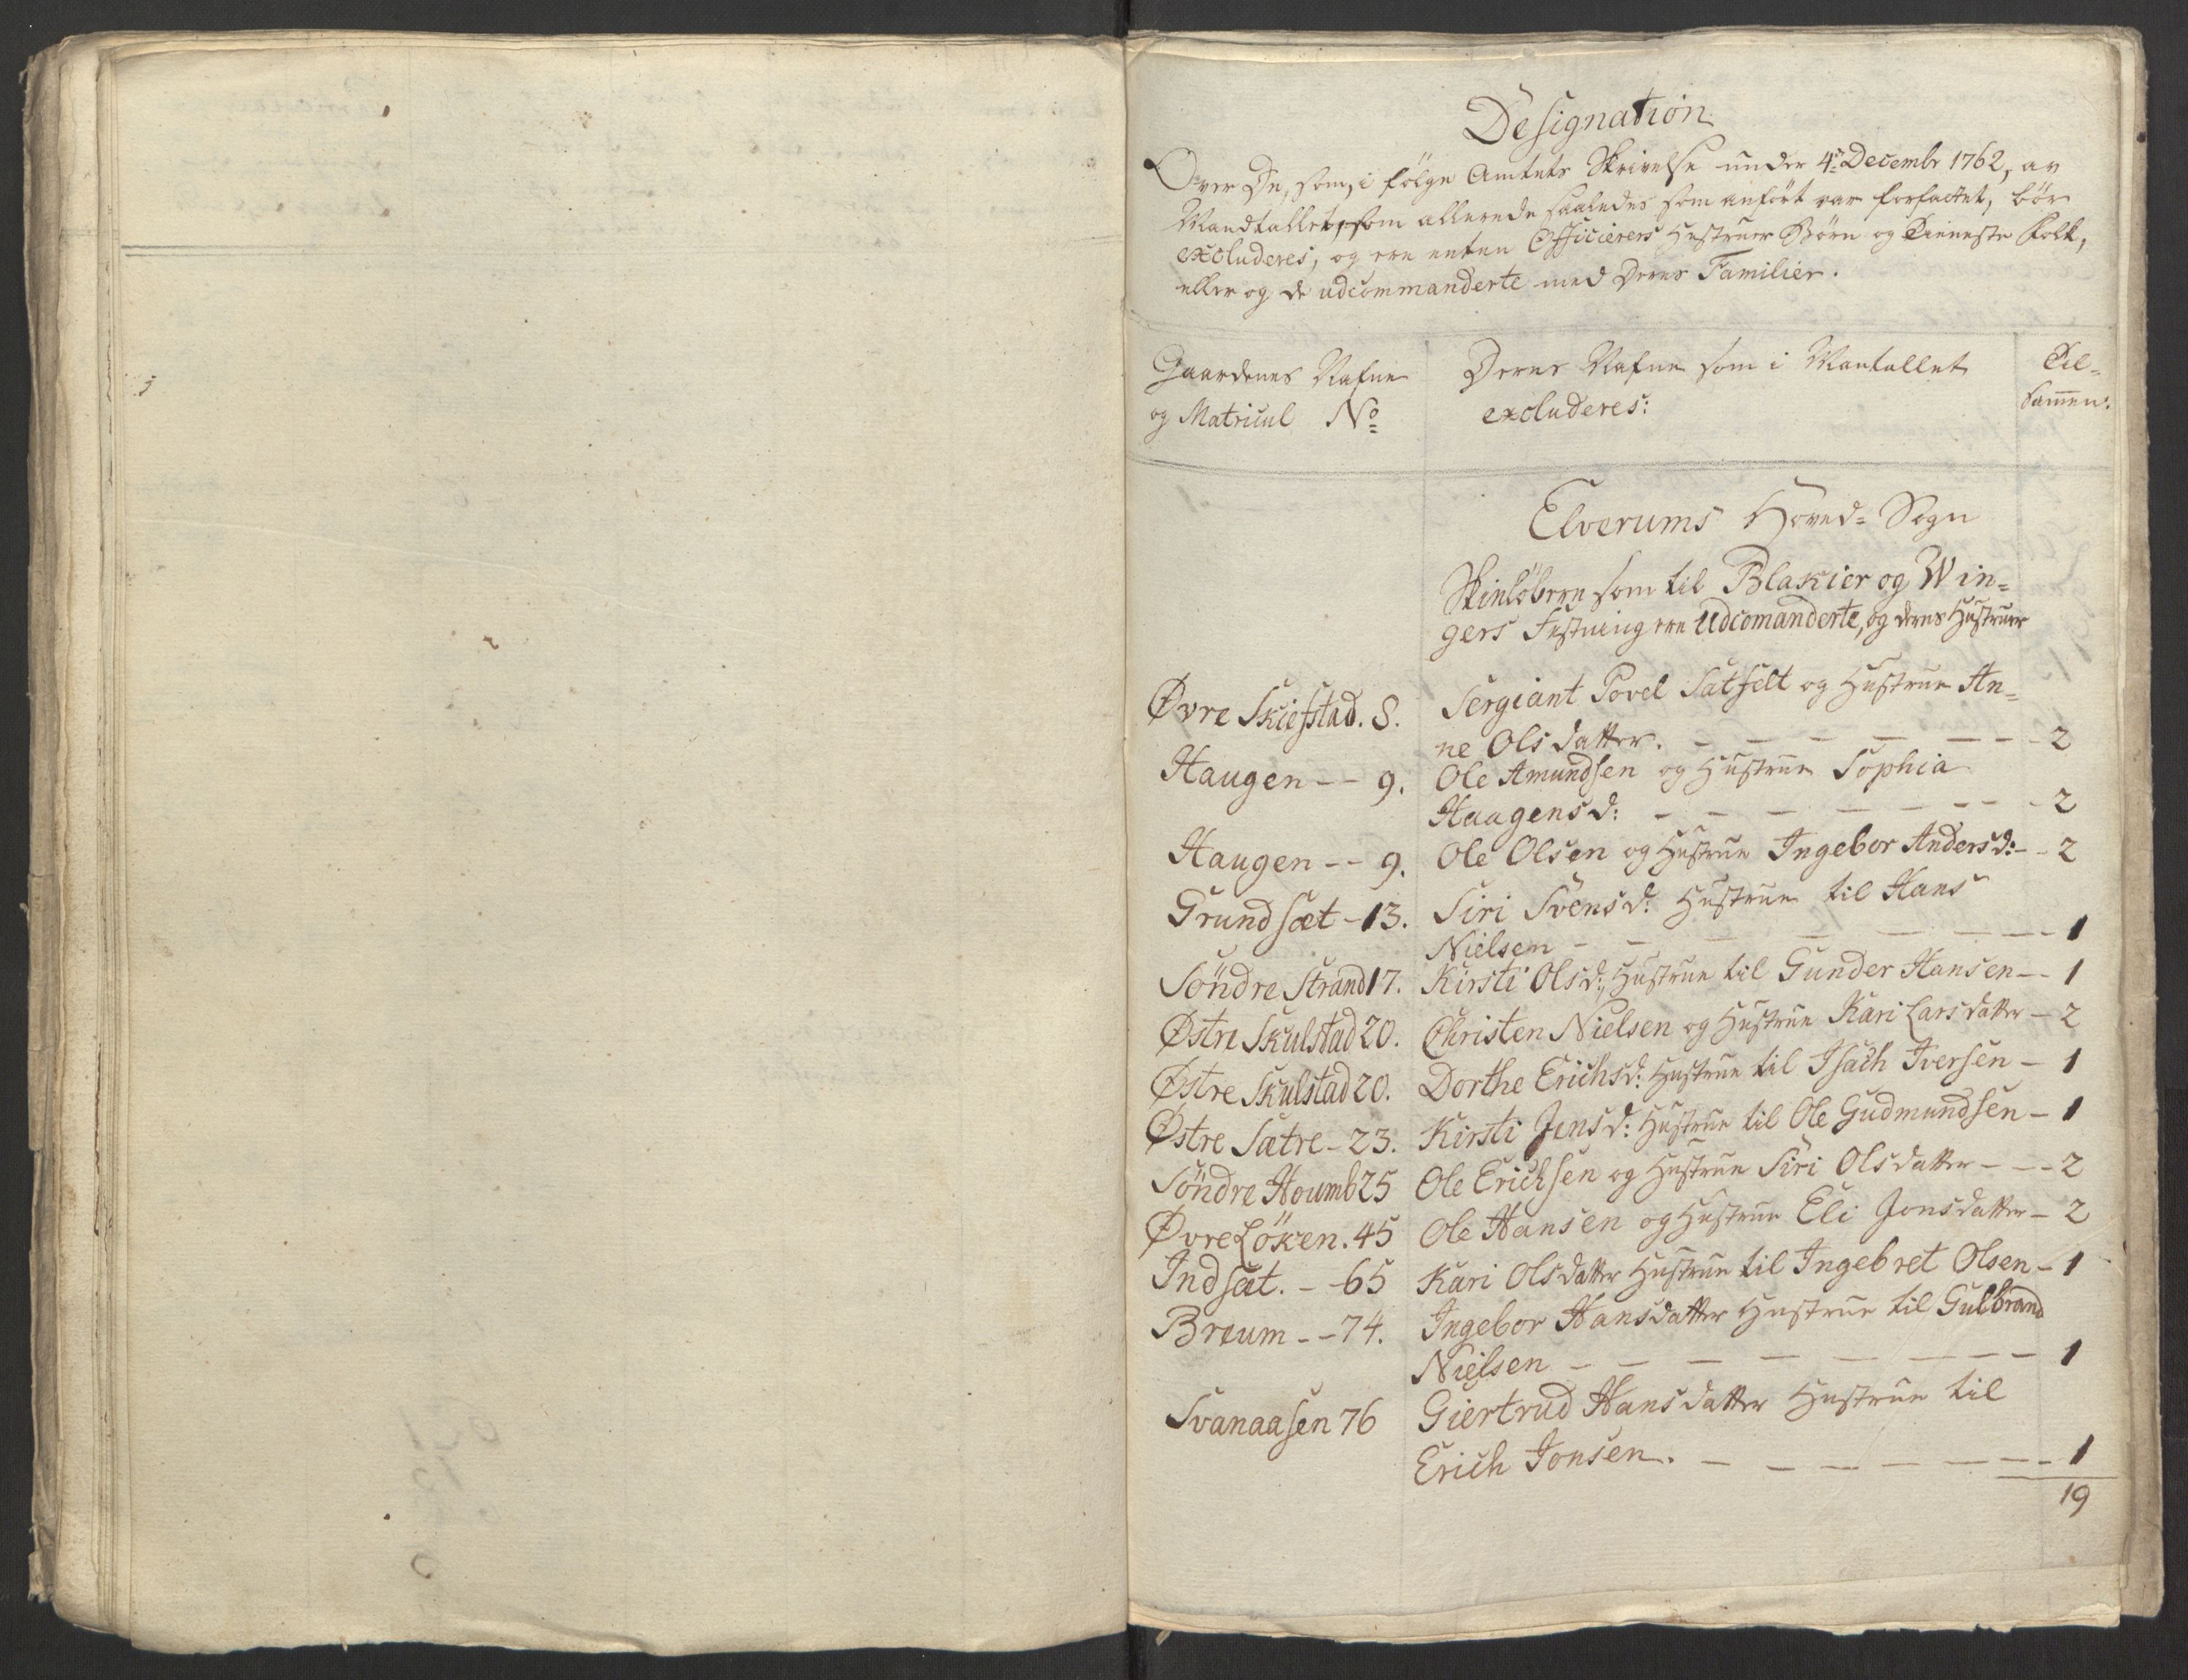 Designation
Over De, som, i følge Amtets Skrivelse under 4de Decembr 1762, av
Mandtallet, som allerede saaledes som anført var forfattet, bör
excluderes, og ere enten Officierers Hustruer Börn og Tieneste Folk,
eller og de udcommanderte med Deres Familier.
Gaardenes Nafne
og Matricul No
Deres Nafne som i Mantallet
excluderes:
Til-
sam̄en:
Elverums Hoved-Sogn
Skielöbere som til Blakier og Win-
gers Festning ere Udcomanderte, og deres Hustruer
Øvre Skiefstad. 8. Sergiant Povel Satfelt og Hustrue An-
ne Olsdatter. - - - - - - - 2
Haugen - - 9. Ole Amundsen og Hustrue Sophia
Haagensd: - - - - - - - - 2
Haugen - - 9. Ole Olsen og Hustrue Ingebor Andersd: - - 2
Grundsæt - 13. Siri Svensd: Hustrue til Hans
Nielsen - - - - - - - - 1
Söndre Strand 17. Kirsti Olsd: Hustrue til Gunder Hansen - - 1
Østre Skulstad 20. Christen Nielsen og Hustrue Kari Larsdatter - 2
Østre Skulstad 20. Dorthe Erichsd: Hustrue til Isach Iversen - 1
Østre Sætre - 23. Kirsti Jensd: Hustrue til Ole Gudmundsen - 1
Söndre Houmb 25 Ole Erichsen og Hustrue Siri Olsdatter - - - 2
Øvre Löken. 45 Ole Hansen og Hustrue Eli Jonsdatter - 2
Indsæt. - - 65 Kari Olsdatter Hustrue til Ingebret Olsen - 1
Breum - - 74. Ingebor Hansdatter Hustrue til Gulbrand
Nielsen - - - - - - - - 1
Svanaasen 76 Giertrud Hansdatter Hustrue til
Erich Jonsen. - - - - - - - - 1
19